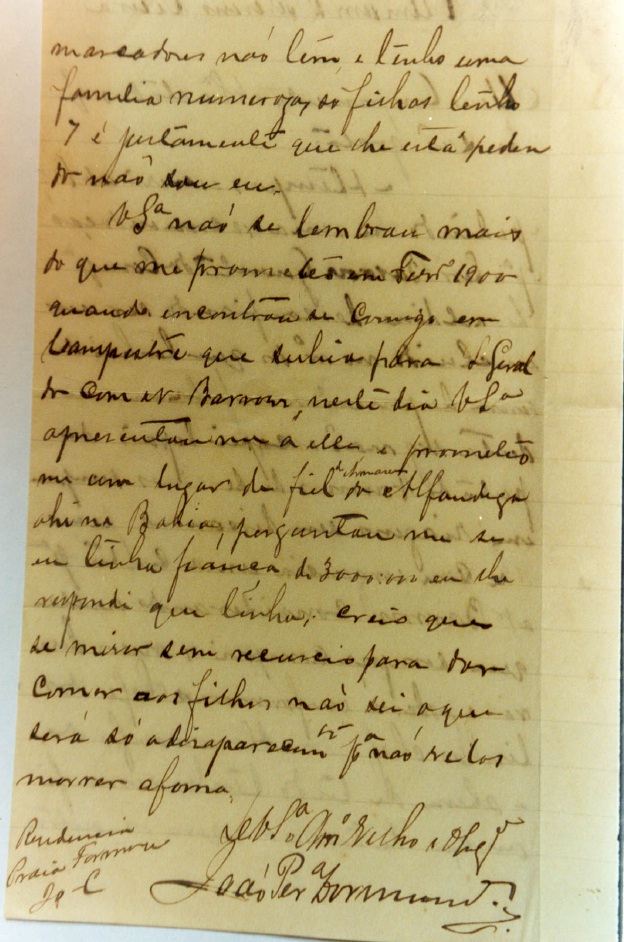 marcadores não têm, e tenho uma
familia numeroza, só filhos tenho
7 é justamente que lhe está pedin
do não sou eu.
VSª não se lembrau mais
do que me prometeo em Ferº 1900
quando encontrãu se comigo em
Campestre que subia para S Geral
do com Barrow, neste dia VSª
apresentau me a elle e prometeo
me um lugar de fiel de Armazem da Alfandega
ahi na Bahia, perguntau me se
eu tinha fiança de 3000:000 eu lhe
respondi que tinha, creio que
se me sem recurcio para dar
comer aos filhos não sei o que
será só adisaparecem pª não velos
morrer afoma,
De VSª Amº Velho e Obgº
João Perª Dormund
Rezidencia
Praia Formoza